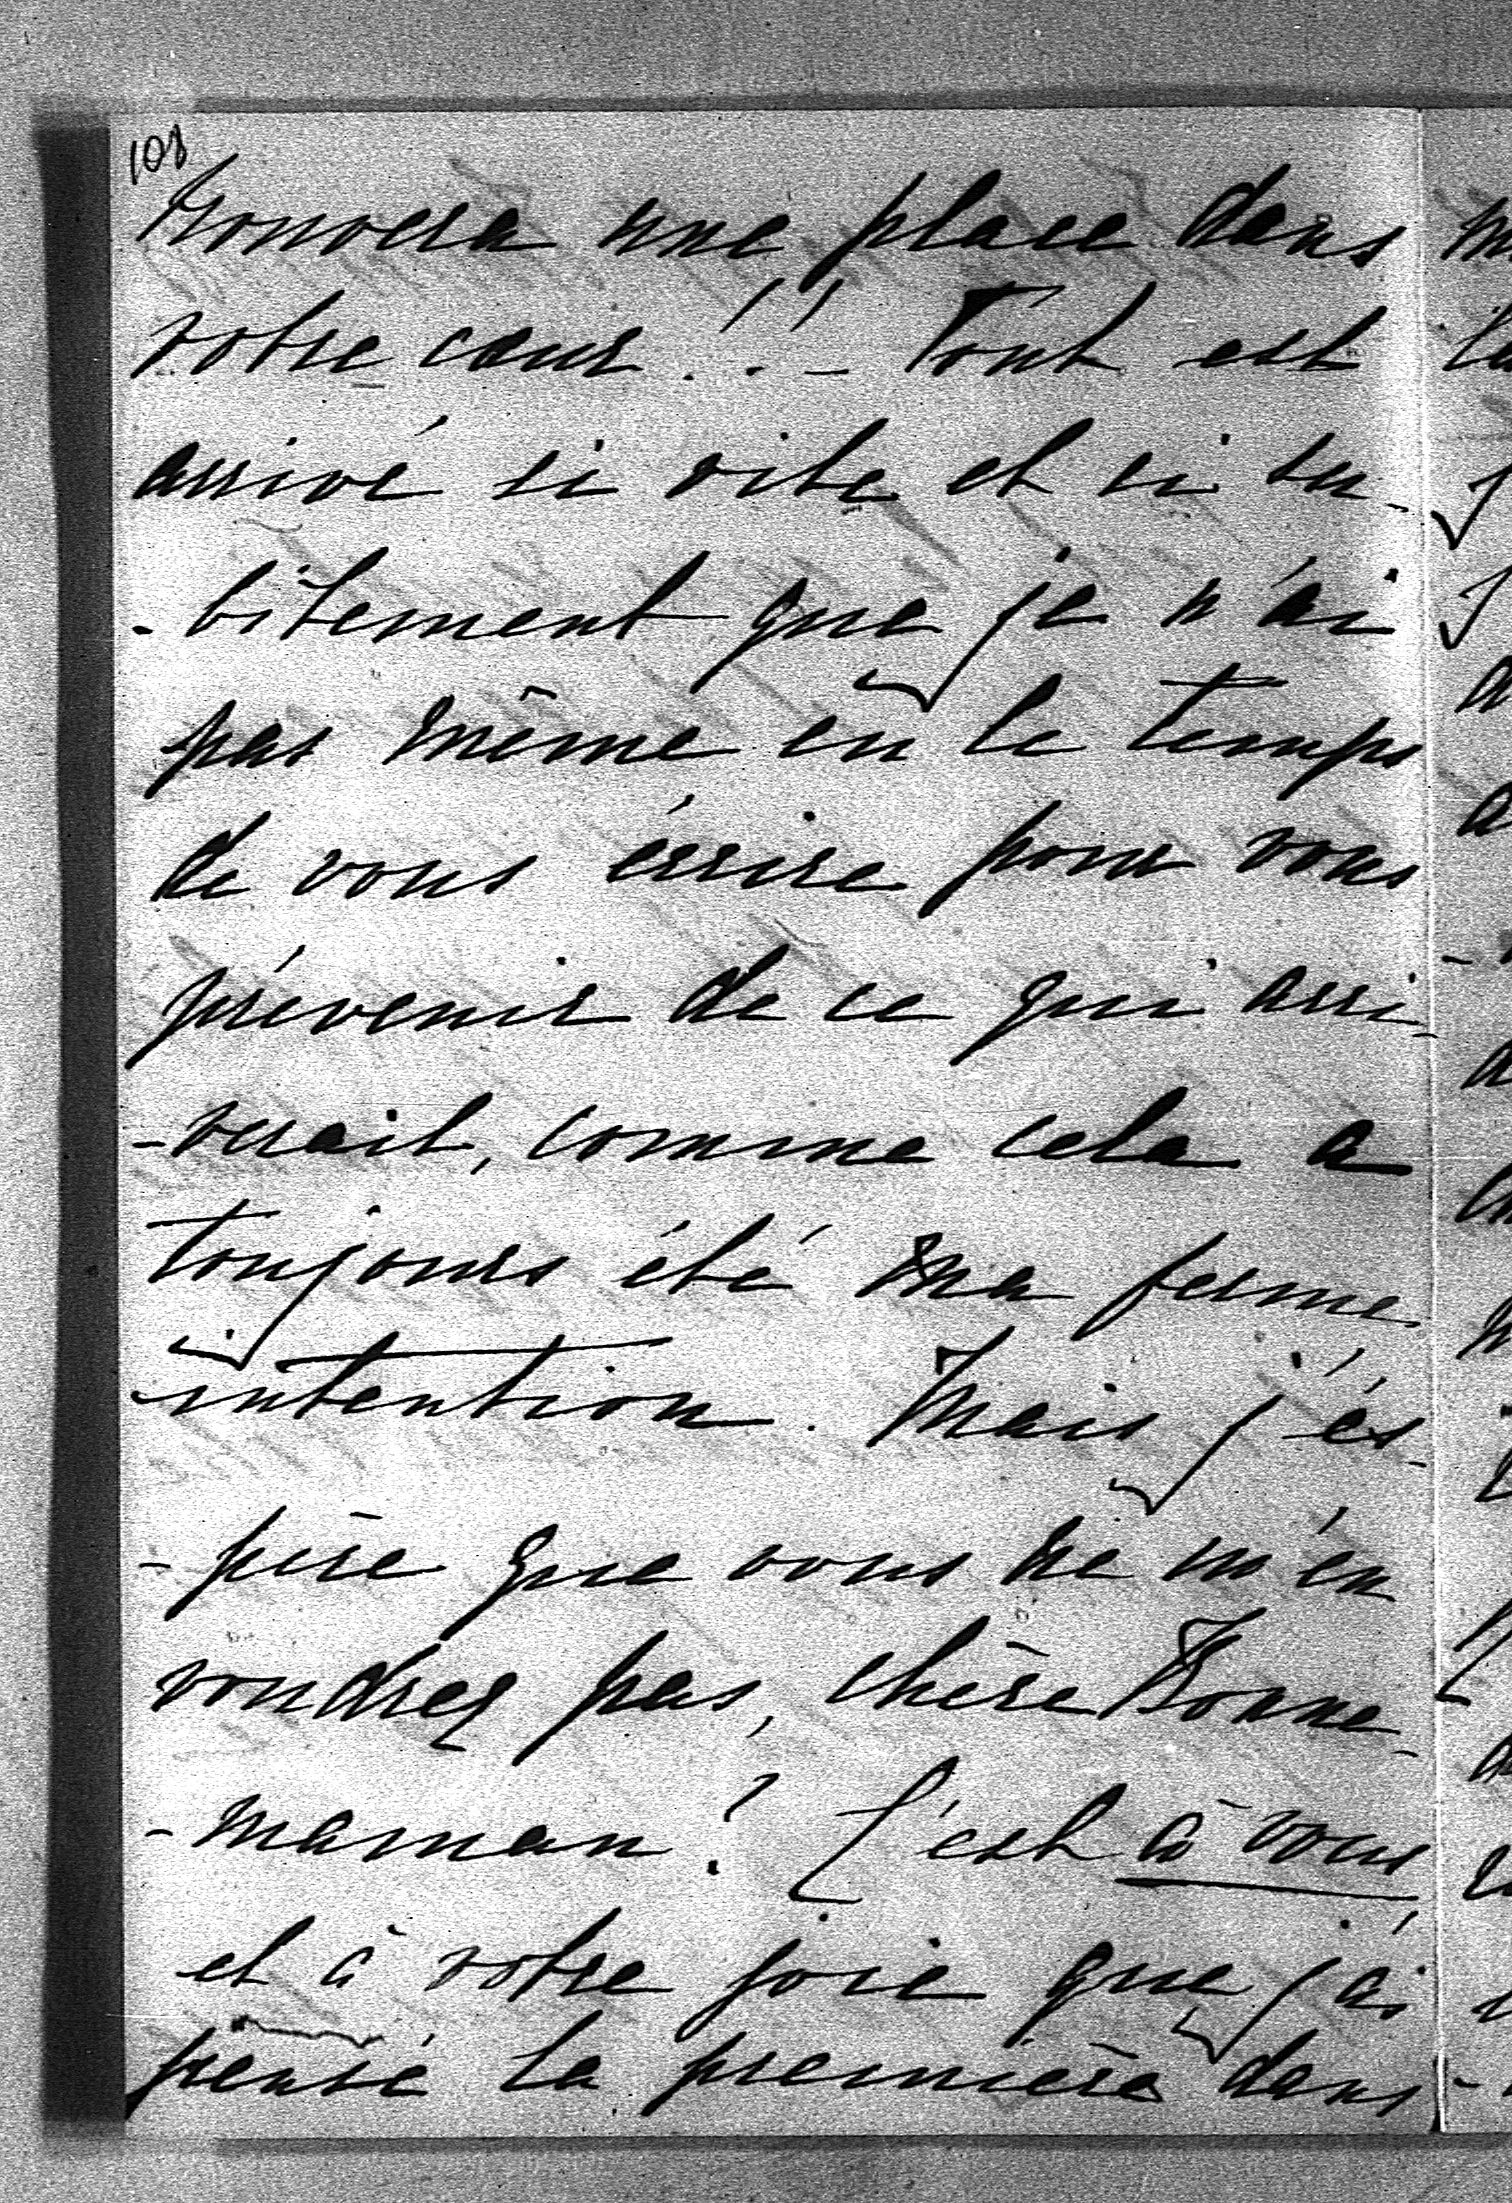 108
trouvera une place dans
votre cœur.!! – Tout est
arrivé si vite et si su-
-bitement que je n'ai
pas même eu le temps
de vous écrire pour vous
prévenir de ce qui arri-
-verait, comme cela a
toujours été ma ferme
intention. Mais j'és-
-père que vous ne m'en
voudrez pas, chère Bonne-
-maman? C'est à vous
et à votre joie que j'ai
pensé la première dans